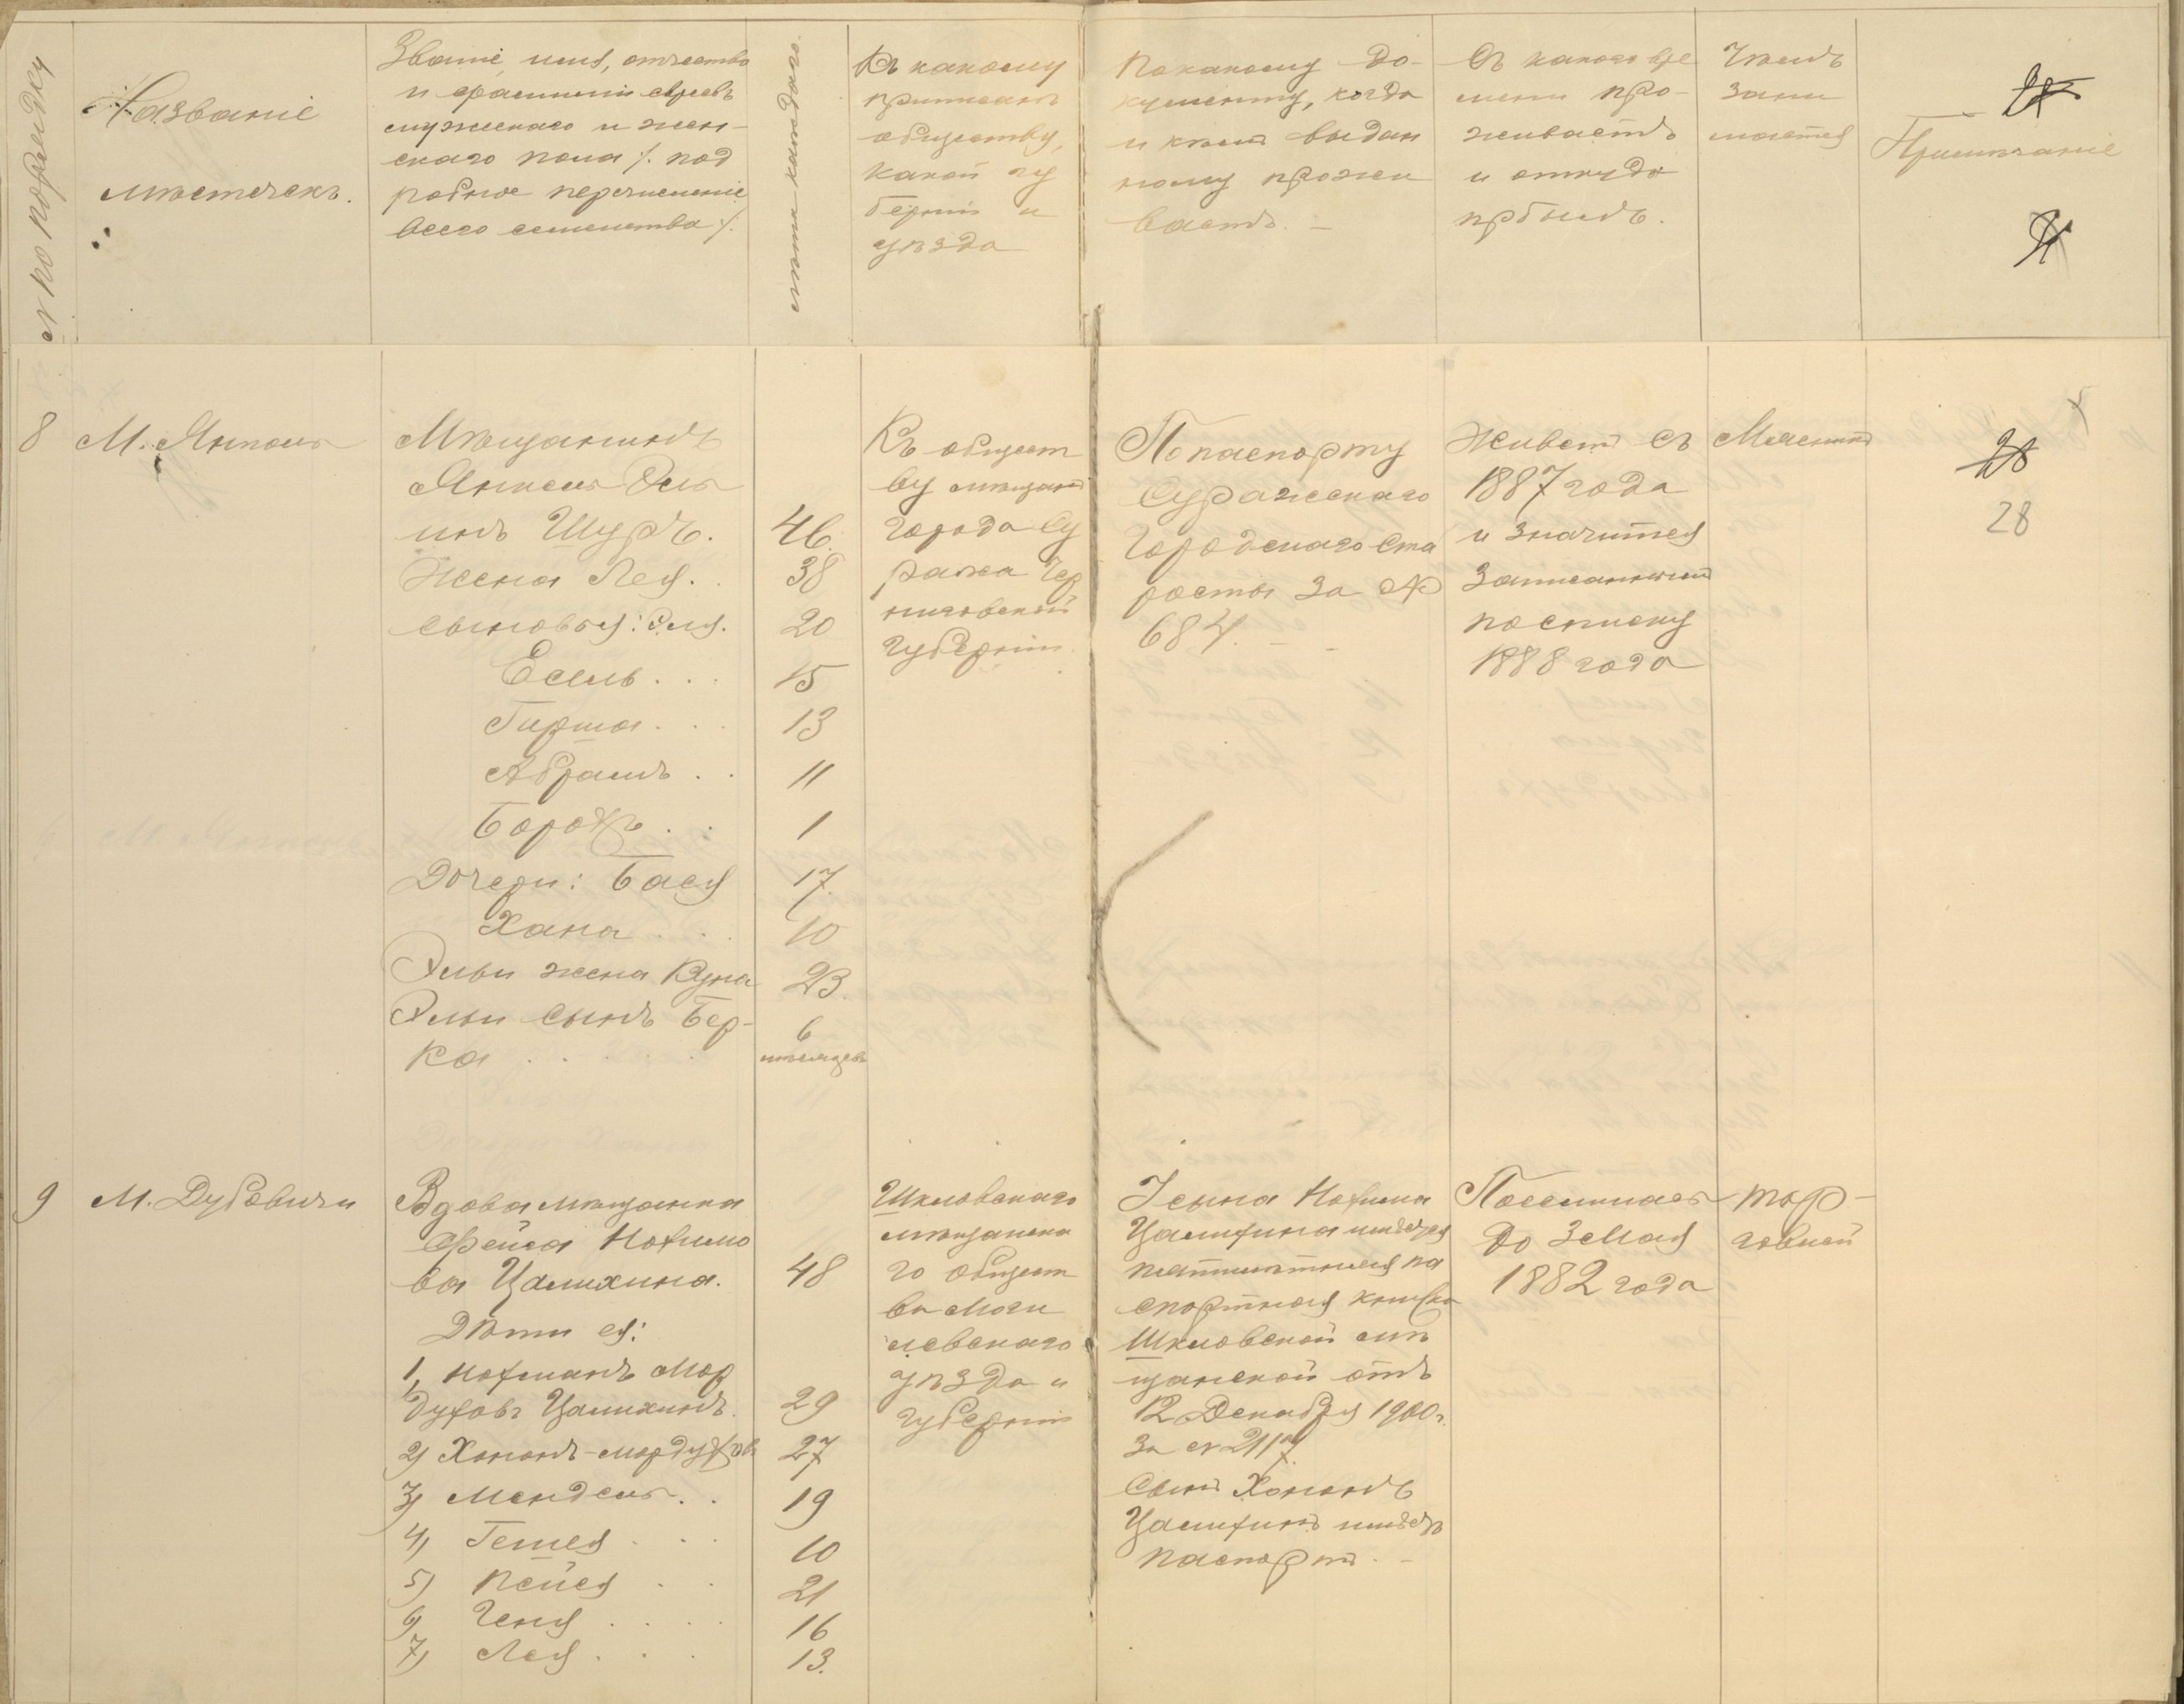 № по порядку
Названіе
мѣстечекъ.
Званіе, имя, отчество
и фамиліи евреевъ
мужскаго и жен-
скаго пола /. под
робное перечисленіе
всего семейства /.
лѣта каждаго.
Къ какому
приписанъ
обществу,
какой гу
берніи и
уѣзда
По какому до-
кументу, когда
и кѣмъ выдан
ному прожи
ваетъ. -
Съ какого вре
мени про-
живаетъ
и откуда
прбылъ.
Чѣмъ
зани
мается
Примѣчаніе
8
М. Ямполь
Мѣщанинъ
Янкель Эль
инъ Шуръ. 46.
Жена Лея. . 38
сыновья: Эля. 20
Есиль . . . 15
Гирша . . . 13
Абрамъ . . 11
Борохъ . . 1
Дочери: Бася 17.
Хана . . . 10
Эльи жена Куна 23.
Эльи сынъ Бер- 6
ка . . . . . мѣсяцевъ
Къ общест
ву мѣщанъ
города Су
ража Чер
ниговской
губерніи.
По паспорту
Суражскаго
Городскаго Ста
росты за №
684. - -
Живетъ съ
1887 года
и значится
записаннымъ
по списку
1888 года
Мясникъ
28
28
9
М. Дубовичи
Вдова мѣщанка
Фейга Нохимо
ва Цалихина. 48
Дѣти ея:
1, Нохманъ Мор
духовъ Цалихинъ. 29
2) Хононъ-Мордуховъ 27
3) Мендель. . 19
4) Гешея . . . 10
5) Пейся . . 21
6) Геня . . . . 16
7) Лея . . . 13.
Шкловскаго
мѣщанска
го общест
ва Моги
левскаго
уѣзда и
губерніи
У сына Нохима
Цалихина имѣется
пятилѣтняя па
спортная книжка
Шкловской мѣ
щанской отъ
12 Декабря 1900 г.
за № 2117.
Сынъ Хононъ
Цалихинъ имѣетъ
паспортъ. -
Поселилась
до 3 Мая
1882 года
тор-
говлей